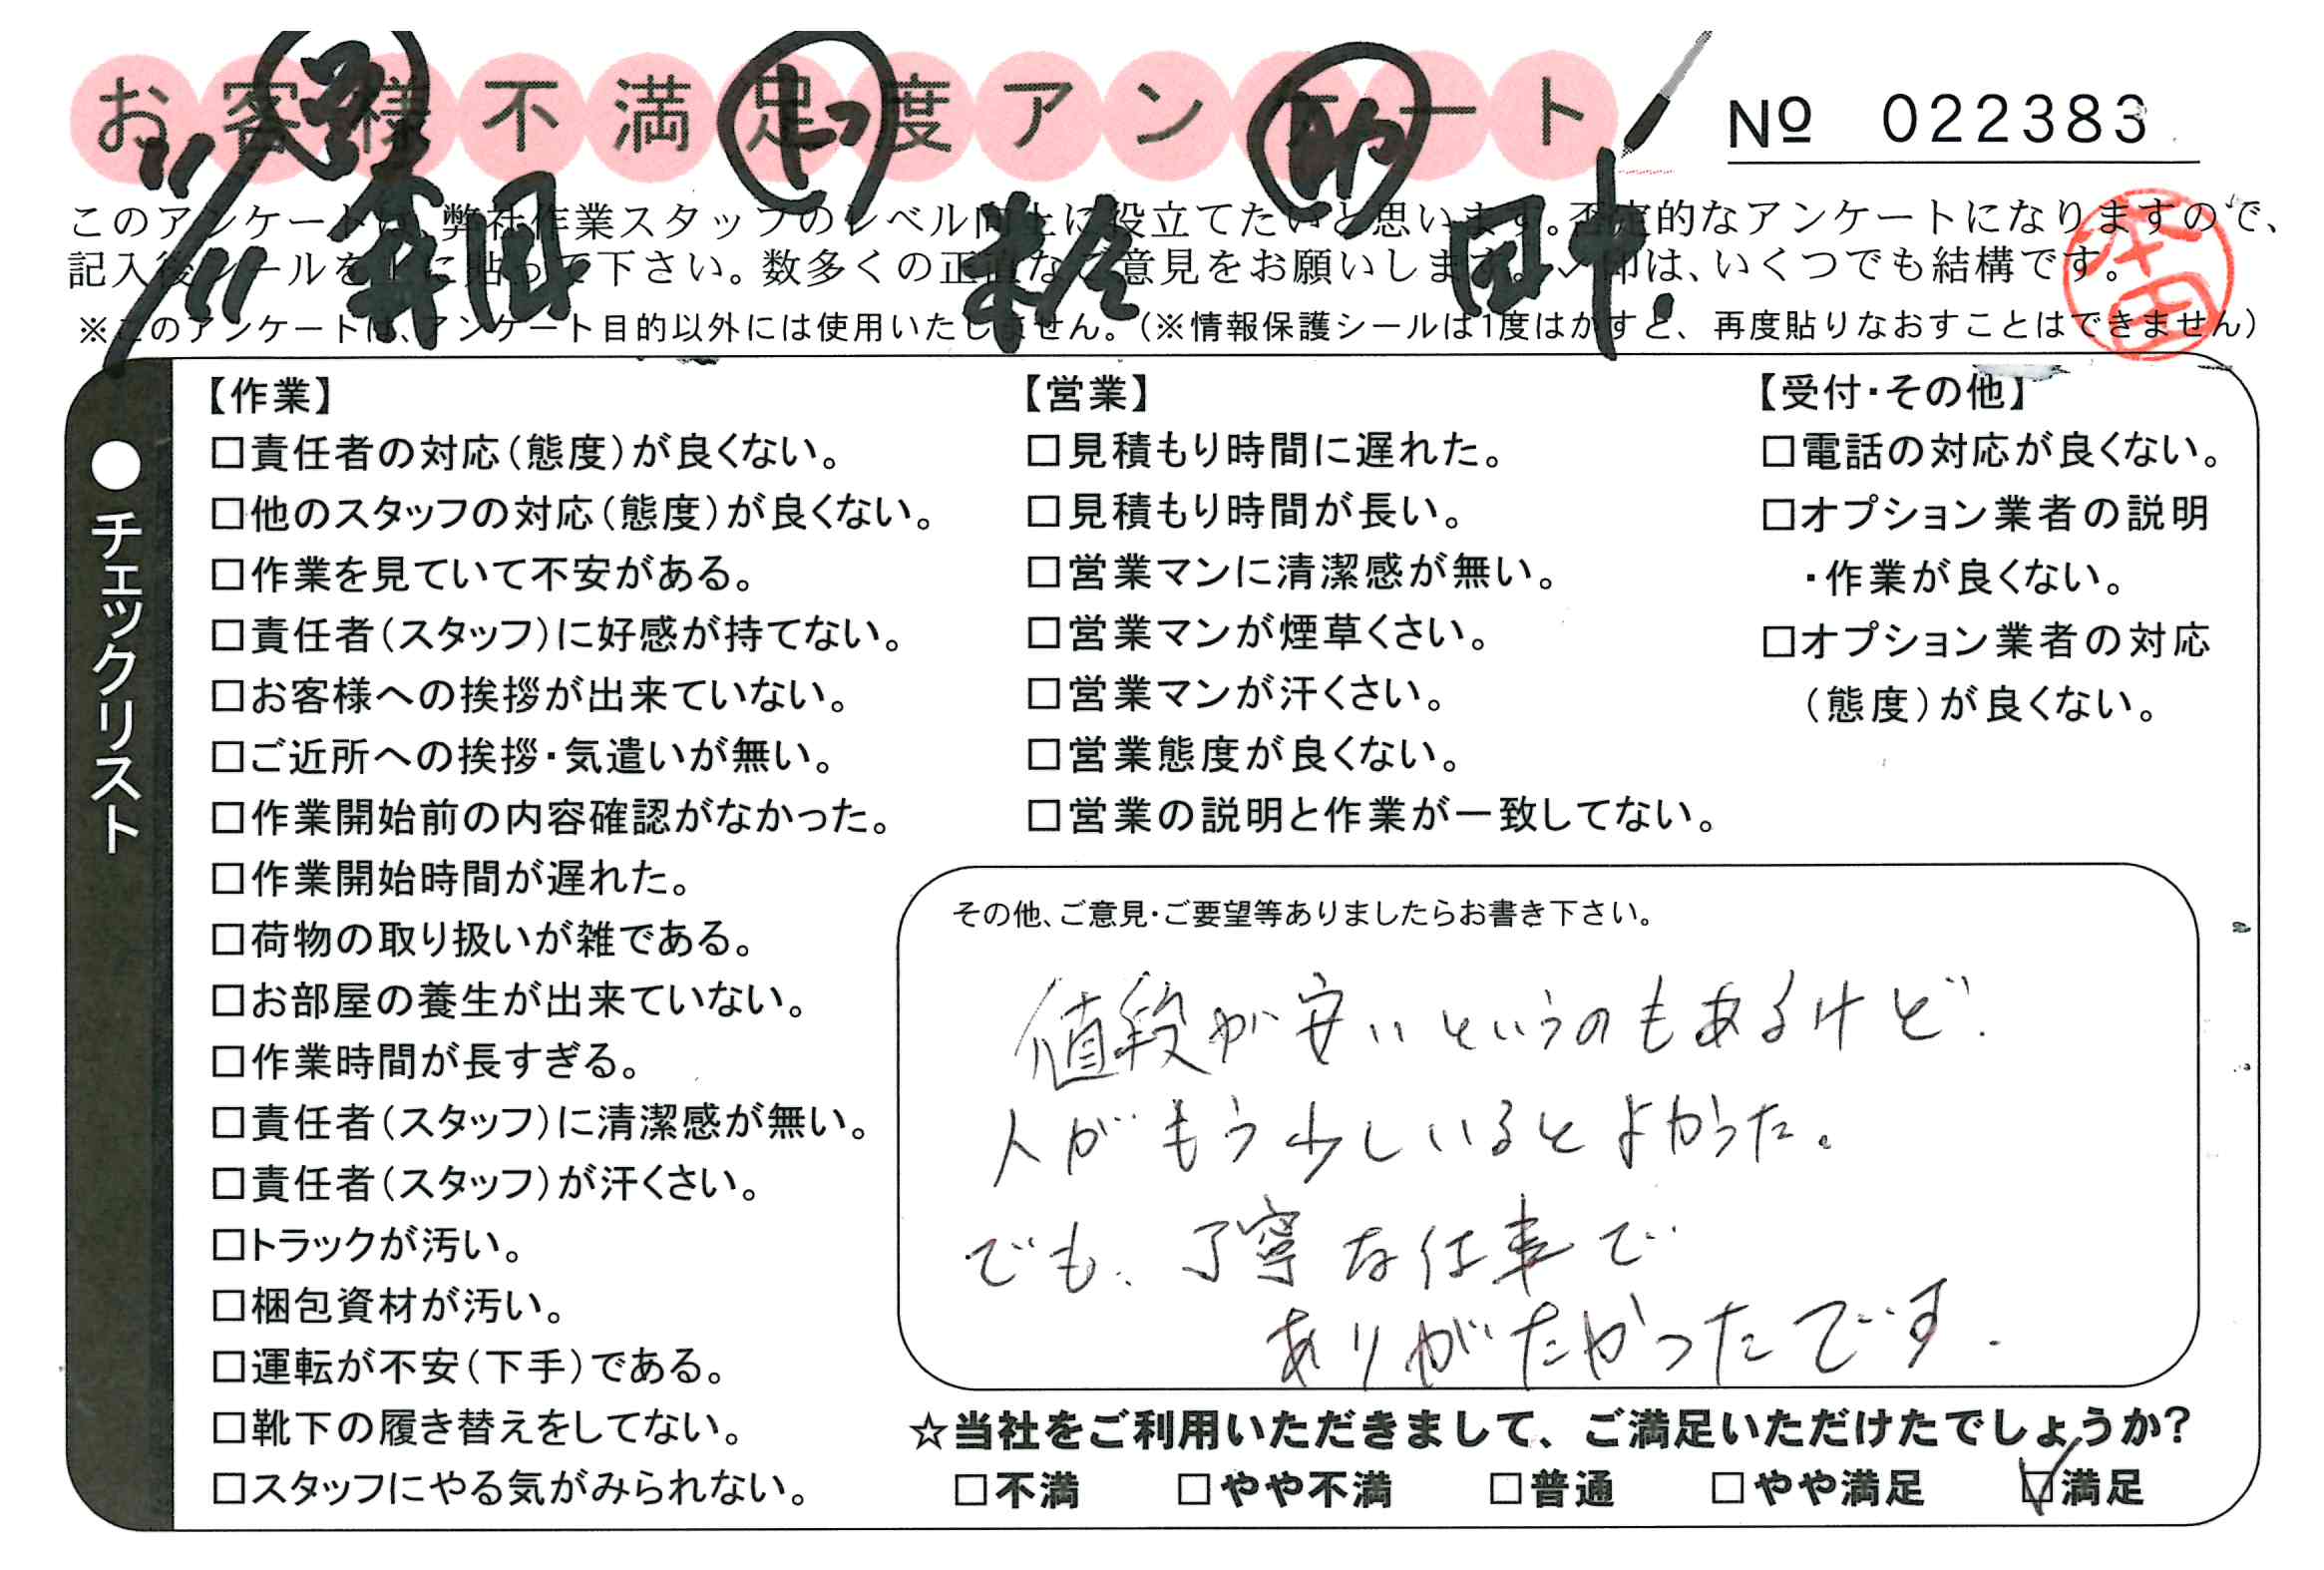 お客様不満足度アンケート
Nº 022383
このアンケートは、弊社作業スタッフのレベル向上に役立てたいと思います。否定的なアンケートになりますので、
記入後シールを上に貼って下さい。数多くの正直なご意見をお願いします。✓印は、いくつでも結構です。
※このアンケートは、アンケート目的以外には使用いたしません。（※情報保護シールは1度はがすと、再度貼りなおすことはできません）
11/11
田中
本田
●チェックリスト
【作業】
□責任者の対応（態度）が良くない。
□他のスタッフの対応（態度）が良くない。
□作業を見ていて不安がある。
□責任者（スタッフ）に好感が持てない。
□お客様への挨拶が出来ていない。
□ご近所への挨拶・気遣いが無い。
□作業開始前の内容確認がなかった。
□作業開始時間が遅れた。
□荷物の取り扱いが雑である。
□お部屋の養生が出来ていない。
□作業時間が長すぎる。
□責任者（スタッフ）に清潔感が無い。
□責任者（スタッフ）が汗くさい。
□トラックが汚い。
□梱包資材が汚い。
□運転が不安（下手）である。
□靴下の履き替えをしてない。
□スタッフにやる気がみられない。
【営業】
□見積もり時間に遅れた。
□見積もり時間が長い。
□営業マンに清潔感が無い。
□営業マンが煙草くさい。
□営業マンが汗くさい。
□営業態度が良くない。
□営業の説明と作業が一致してない。
【受付・その他】
□電話の対応が良くない。
□オプション業者の説明
・作業が良くない。
□オプション業者の対応
（態度）が良くない。
その他、ご意見・ご要望等ありましたらお書き下さい。
値段が安いというのもあるけど、
人がもう少しいるとよかった。
でも、丁寧な仕事で
ありがたかったです。
☆当社をご利用いただきまして、ご満足いただけたでしょうか？
□不満 □やや不満 □普通 □やや満足 ☑満足